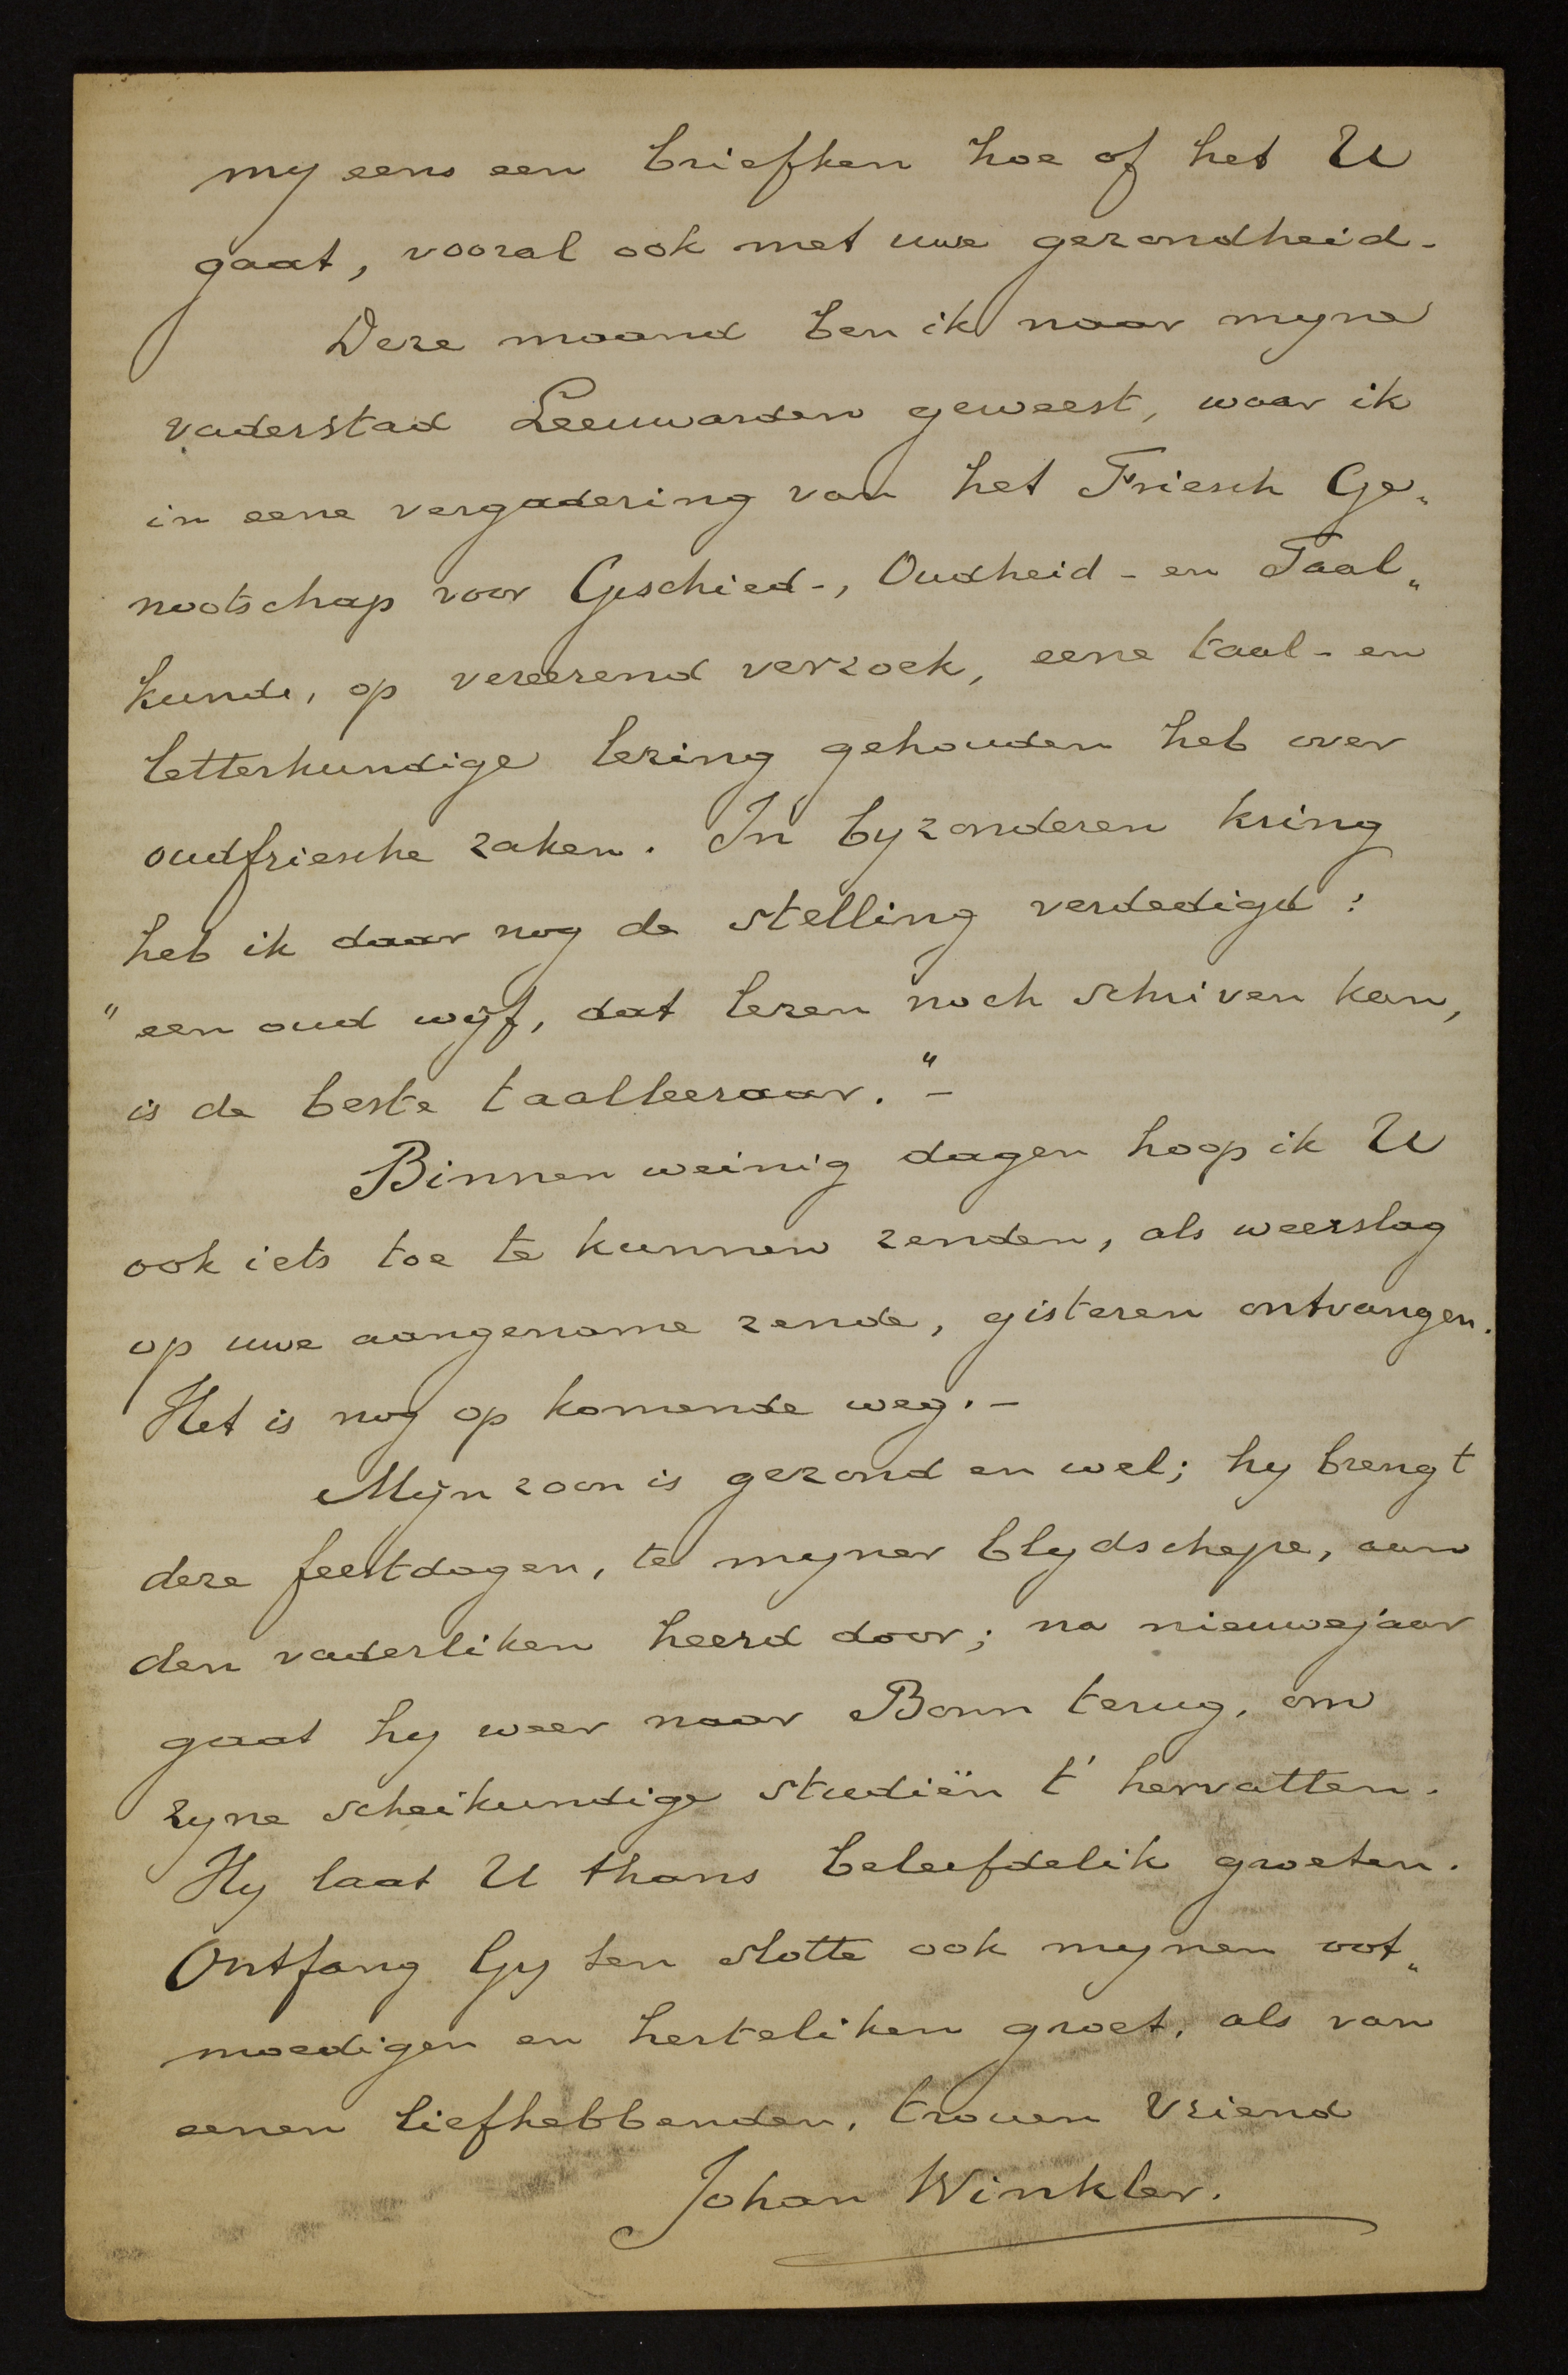 my eens een briefken hoe of het U
gaat, vooral ook met uwe gezondheid.
Deze maand ben ik naar myne
vaderstad Leeuwarden geweest, waar ik
in eene vergadering van het Friesch Ge„
nootschap voor Geschied-, Oudheid- en Taal„
kunde, op vereerend verzoek, eene taal- en
letterkundige lezing gehouden heb over
oudfriesche zaken. In byzonderen kring
heb ik daar nog de stelling verdedigd:
"een oud wijf, dat lezen noch schriven kan,
is de beste taalleeraar."-
Binnen weinig dagen hoop ik U
ook iets toe te kunnen zenden, als weerslag
op uwe aangename zende, gisteren ontvangen.
Het is nog op komende weg.-
Mijn zoon is gezond en wel; hy brengt
deze feestdagen, te myner blydschepe, aan
den vaderliken heerd door; na nieuwejaar
gaat hy weer naar Bonn terug, om
zyne scheikundige studiën t' hervatten.
Hy laat U thans beleefdelik groeten.
Ontfang Gy ten slotte ook mynen oot„
moedigen en herteliken groet, als van
eenen liefhebbenden, trouen vriend
Johan Winkler.